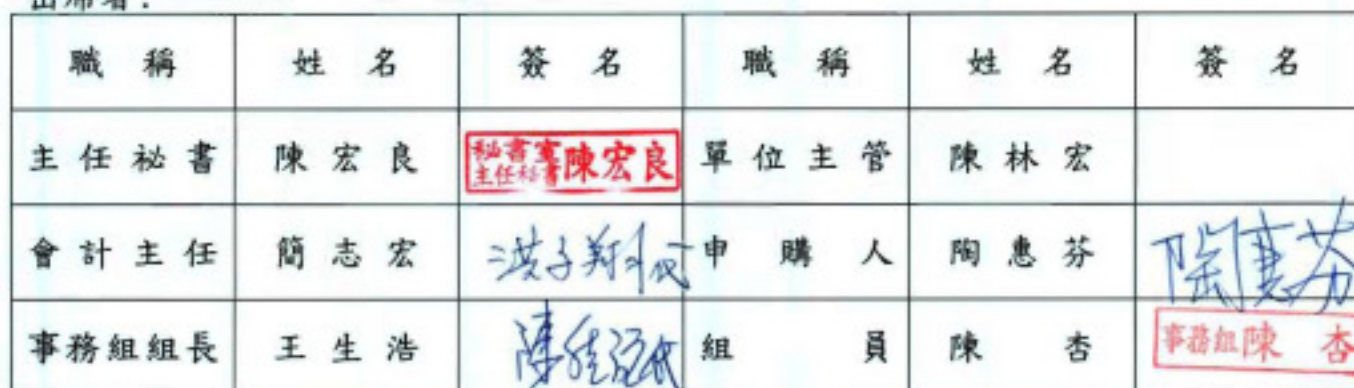 出席者：
職稱 姓名 簽名 職稱 姓名 簽名
主任祕書 陳宏良 秘書室主任秘書陳宏良 單位主管 陳林宏
會計主任 簡志宏 洪子翔代 申購人 陶惠芬 陶惠芬
事務組組長 王生浩 陳 代 組員 陳杏 事務組陳杏